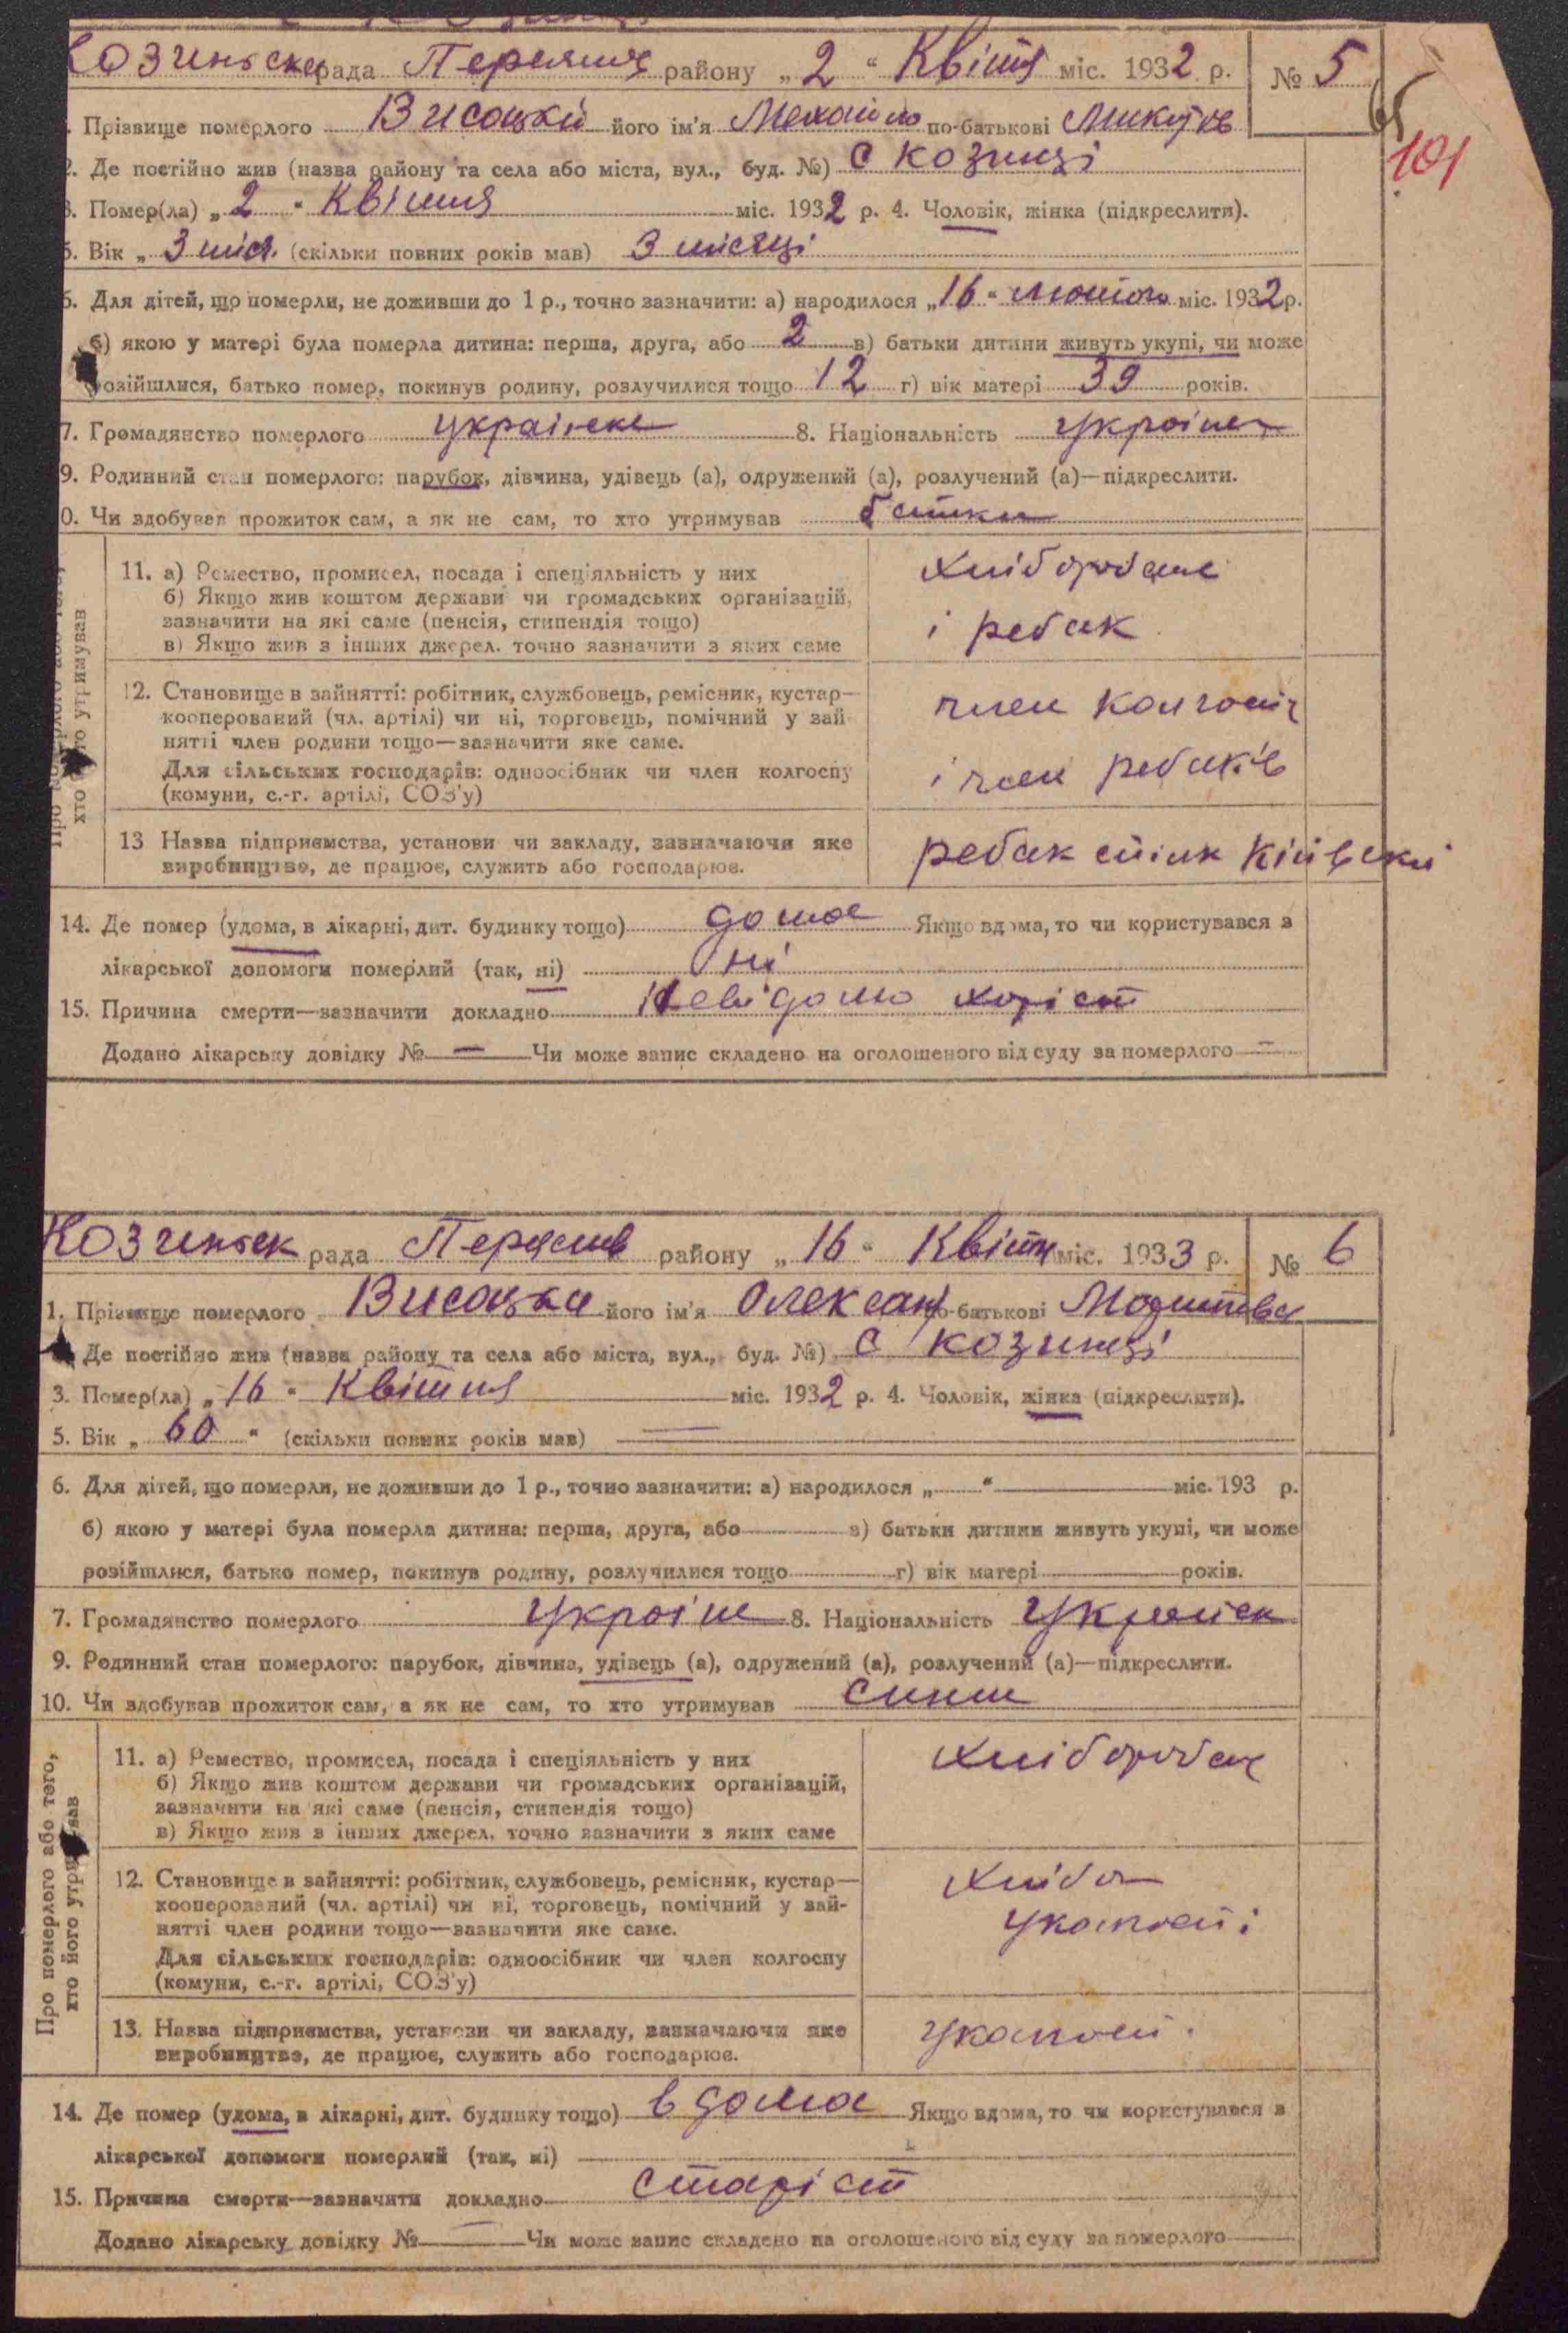 Козинська рада Переяслв району „2“ Квітня міс. 1932 р. № 5
65
101
Прізвище померлого Висоцкй його ім'я Михайло по-батькові
2. Де постійно жив (назва району та села або міста, вул., буд. №) С Козинці
3. Помер(ла) „2“ Квітня міс. 1932 р. 4. Чоловік, жінка (підкреслити).
5. Вік „3 міся. (скільки повних років мав) 3 місяці
6. Для дітей, що померли, не доживши до 1 р., точно зазначити: а) народилося „16“ лютого міс. 1932 р.
б) якою у матері була померла дитина: перша, друга, або 2 в) батьки дитини живуть укупі, чи може
розійшлися, батько помер, покинув родину, розлучилися тощо 12 г) вік матері 39 років.
7. Громадянство померлого українске 8. Національність українец
9. Родинний стан померлого: парубок, дівчина, удівець (а), одружений (а), розлучений (а)—підкреслити.
0. Чи здобував прожиток сам, а як не сам, то хто утримував батки
11. а) Ремество, промисел, посада і спеціяльність у них
б) Якщо жив коштом держави чи громадських організацій,
зазначити на які саме (пенсія, стипендія тощо)
в) Якщо жив з інших джерел. точно зазначити з яких саме
хлібороб
і ребак
хто утримував
12. Становище в зайнятті: робітник, службовець, ремісник, кустар—
кооперований (чл. артілі) чи ні, торговець, помічний у зай-
нятті член родини тощо—зазначити яке саме.
Для сільських господарів: одноосібник чи член колгоспу
(комуни, с.-г. артілі, СОЗ'у)
член
і член ребаків
13 Назва підприємства, установи чи закладу, зазначаючи яке
виробництво, де працює, служить або господарює.
ребак спілк Київскої
14. Де помер (удома, в лікарні, дит. будинку тощо) дома Якщо вдома, то чи користувався з
лікарської допомоги померлий (так, ні) ні
15. Причина смерти—зазначити докладно Невідомо
Додано лікарську довідку № — Чи може запис складено на оголошеного від суду за померлого —
Козинськ рада Переяслв району „16“ Квітн міс. 1933 р. № 6
1. Прізвище померлого Висоцка його ім'я Олександ по-батькові
Де постійно жив (назва району та села або міста, вул., буд. №) С Козинці
3. Помер(ла) „16“ Квітня міс. 1932 р. 4. Чоловік, жінка (підкреслити).
5. Вік „60“ (скільки повних років мав) —
6. Для дітей, що померли, не доживши до 1 р., точно зазначити: а) народилося „ “ міс. 193 р.
б) якою у матері була померла дитина: перша, друга, або в) батьки дитини живуть укупі, чи може
розійшлися, батько помер, покинув родину, розлучилися тощо г) вік матері років.
7. Громадянство померлого україн 8. Національність Українск
9. Родинний стан померлого: парубок, дівчина, удівець (а), одружений (а), розлучений (а)—підкреслити.
10. Чи здобував прожиток сам, а як не сам, то хто утримував сини
Про померлого або того,
хто його утримував
11. а) Ремество, промисел, посада і спеціяльність у них
б) Якщо жив коштом держави чи громадських організацій,
зазначити на які саме (пенсія, стипендія тощо)
в) Якщо жив з інших джерел, точно зазначити з яких саме
хлібороб
12. Становище в зайнятті: робітник, службовець, ремісник, кустар—
кооперований (чл. артілі) чи ні, торговець, помічний у зай-
нятті член родини тощо—зазначити яке саме.
Для сільських господарів: одноосібник чи член колгоспу
(комуни, с.-г. артілі, СОЗ'у)
13. Назва підприємства, установи чи закладу, зазначаючи яке
виробництво, де працює, служить або господарює.
14. Де помер (удома, в лікарні, дит. будинку тощо) вдома Якщо вдома, то чи користувався з
лікарської допомоги померлий (так, ні)
15. Причина смерти—зазначити докладно старіст
Додано лікарську довідку № — Чи може запис складено на оголошеного від суду за померлого —